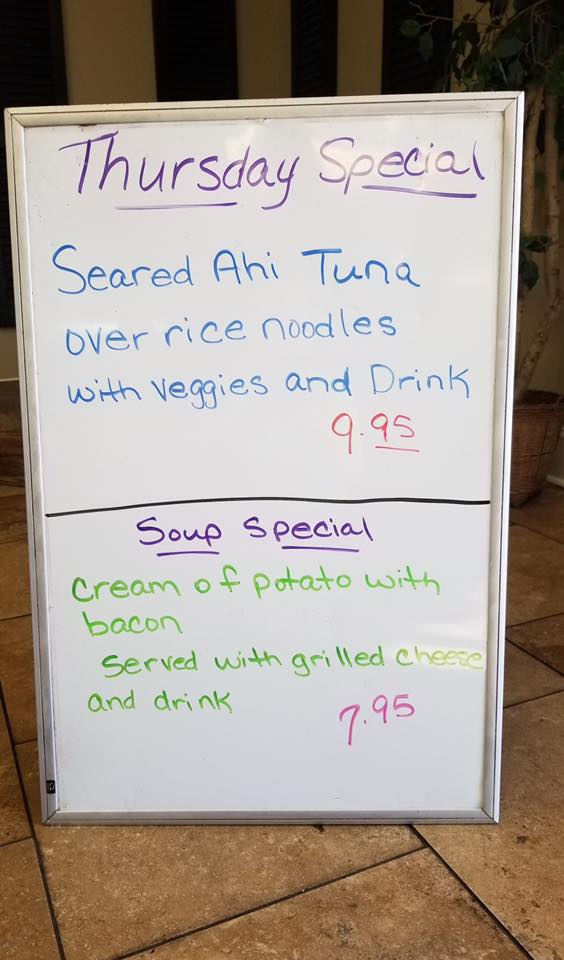 Thursday Special
Seared Ahi Tuna
over rice noodles
with veggies and Drink
9.95
Soup Special
Cream of potato with
bacon
Served with grilled cheese
and drink
7.95